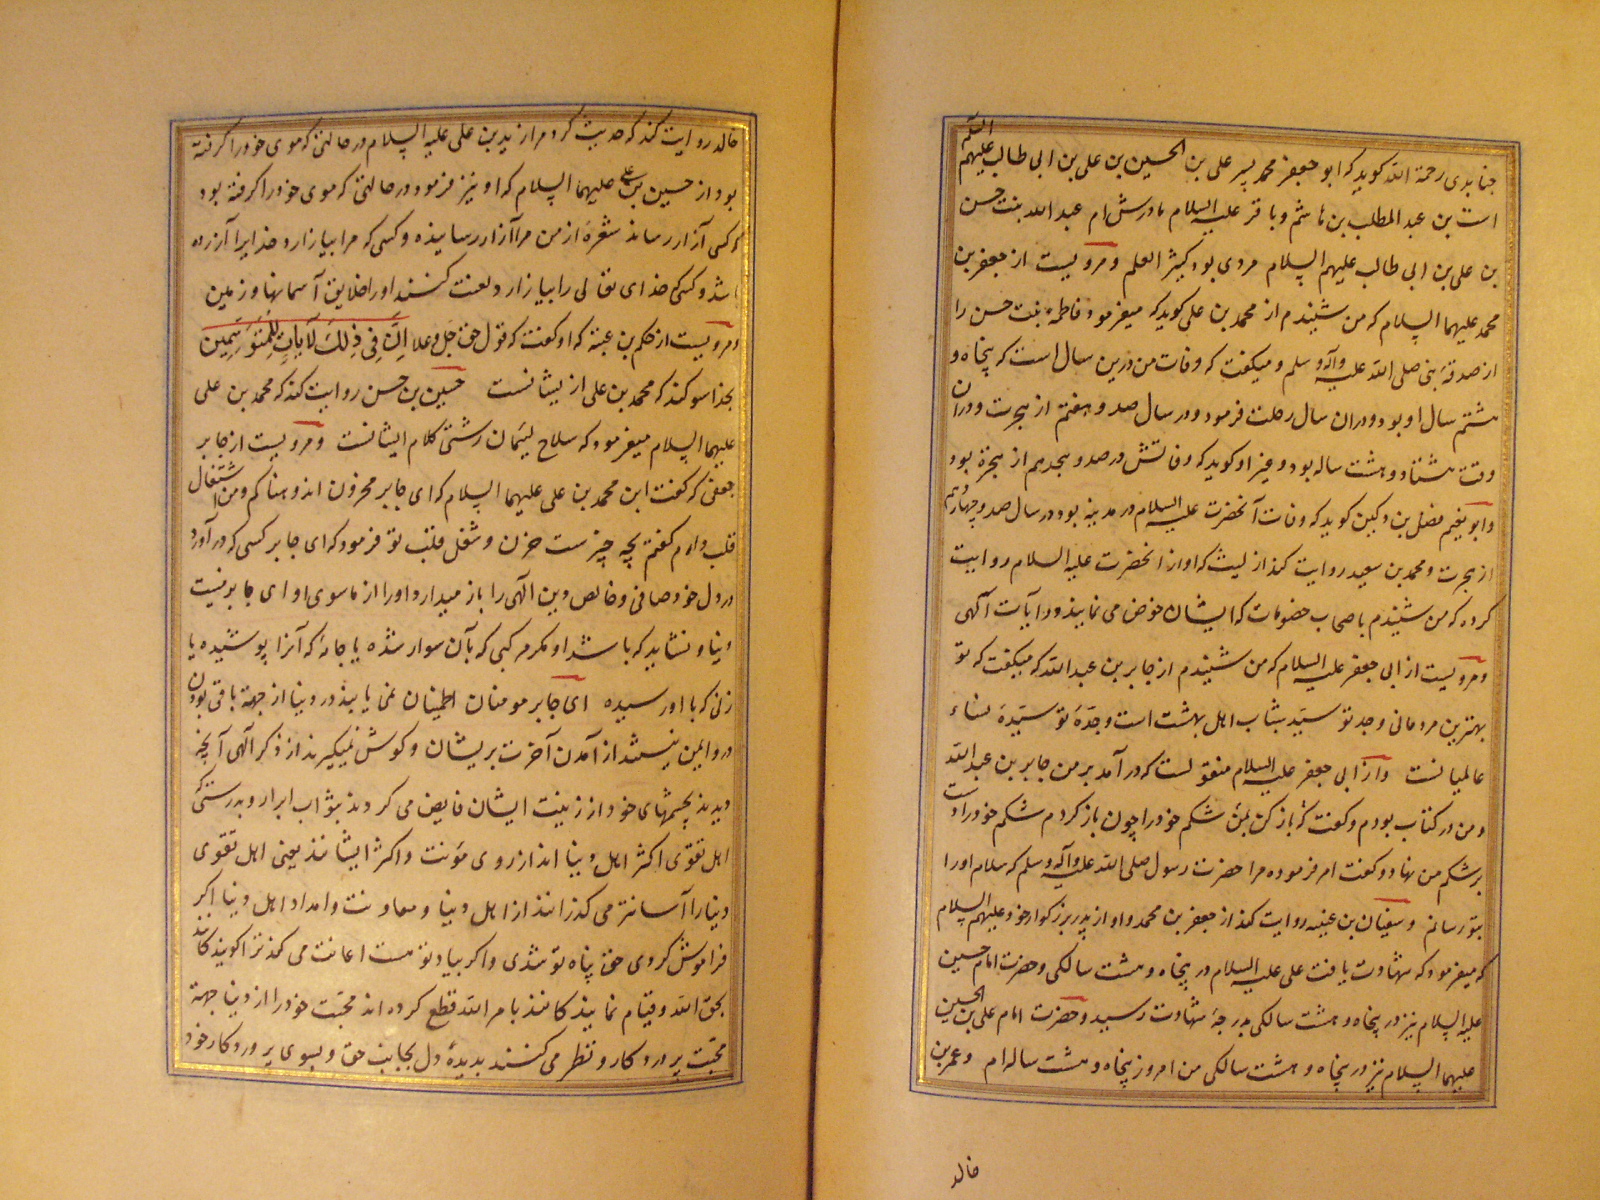 جنابدی رحمة الله کوید که ابو جعفر محمد پسر علی بن الحسین بن علی بن ابی طالب علیهم السلم
است بن عبد المطلب بن هاشم و باقر علیه السلام مادرش ام عبد الله بنت حسن
بن علی بن ابی طالب علیهم السلام مردی بود کثیر العلم و مرویست از جعفر بن
محمد علیهما السلام که من شنیدم از محمد بن علی کوید که میفرمود فاطمه بنت حسن را
از صدقهٔ نبی صلی الله علیه وآله وسلم و میکفت که وفات من درین سال است که پنجاه و
هشتم سال او بود و در ان سال رحلت فرمود و در سال صد و هفتم از هجرت و در ان
وقت هشتاد و هشت ساله بود و غیر او کوید که وفاتش در صد و هجدهم از هجرة بود
و ابو نعیم فضل بن دکین کوید که وفات آنحضرت علیه السلام در مدینه بود در سال صد و چهاردهم
از هجرت و محمد بن سعید روایت کند از لیث که او از انحضرت علیه السلام روایت
کرده که من شنیدم با صحاب خصومات که ایشان خوض می نمایند در آیات آلهی
و مرویست از ابی جعفر علیه السلام که من شنیدم از جابر بن عبد الله که میکفت که تو
بهترین مردمانی و جد تو سید شباب اهل بهشت است و جدهٔ تو سیدهٔ نساء
عالمیانست و از ابی جعفر علیه السلام منقولست که در آمد بر من جابر بن عبد الله
و من در کتاب بودم و کفت که باز کن بمن شکم خود را چون باز کردم شکم خود را دست
بر شکم من نهاد و کفت امر فرموده مرا حضرت رسول صلی الله علیه وآله وسلم که سلام او را
بتو رسانم و سفیان بن عیینه روایت کند از جعفر بن محمد و او از پدر بزرکوار خود علیهم السلام
که میفرمود که شهادت یافت علی علیه السلام در پنجاه و هشت سالکی و حضرت امام حسین
علیه السلام نیز در پنجاه و هشت سالکی بدرجهٔ شهادت رسید و حضرت امام علی بن الحسین
علیهما السلام نیز در پنجاه و هشت سالکی من امروز پنجاه و هشت ساله ام و عمر بن
خالد
خالد روایت کند که حدیث کرد مرا زید بن علی علیه السلام در حالتی که موی خود را کرفته
بود از حسین بن علی علیهما السلام که او نیز فرمود در حالتی که موی خود را کرفته بود
که کسی آزار رساند شعرهٔ از من مرا آزار رسانیده و کسی که مرا بیازارد خدایرا آزرده
باشد و کسی که خدای تعالی را بیازارد لعنت کنند او را خلایق آسمانها و زمین
و مرویست از حکم بن عتبه که او کفت که قول حق جل و علا اِنَّ فِی ذٰلِکَ لَآیاتٍ لِلْمُتَوَسِّمِین
بخدا سوکند که محمد بن علی از یشانست حسین بن حسن روایت کند که محمد بن علی
علیهما السلام میفرمود که سلاح لئیمان زشتی کلام ایشانست و مرویست از جابر
جعفی که کفت ابن محمد بن علی علیهما السلام که ای جابر محزون اندوهناکم و من اشتغال
قلب دارم کفتم بچه چیزست حزن و شغل قلب تو فرمود که ای جابر کسی که در آورد
در دل خود صافی و خالص دین الهی را باز میدارد او را از ماسوی او ای جابر نیست
دنیا و نشاید که باشد او مکر مرکبی که بآن سوار شده یا جامهٔ که آنرا پوشیده یا
زنی که با او رسیده ای جابر مومنان اطمینان نمی یابند در دنیا از جهة باقی بودن
در و ایمن نیستند از آمدن آخرت بریشان و کوش نمیکیرند از ذکر آلهی آنچه
دیدند بچشمهای خود از زینت ایشان فایض می کردند بثواب ابرار و بدرستی که
اهل تقوی اکثر اهل دنیا اند از روی مؤنت و اکثر ایشانند یعنی اهل تقوی
دنیا را آسانتر می کذرانند از اهل دنیا و معاونت و امداد اهل دنیا اکبر
فراموش کردی حق پناه تو شدی و اکر بیاد تو هست اعانت می کند ترا کویند کانند
بحق الله و قیام نمایند کانند بامر الله قطع کرده اند محبت خود را از دنیا جهة
محبت پروردکار و نظر می کنند بدیدهٔ دل بجانب حق و بسوی پروردکار خود